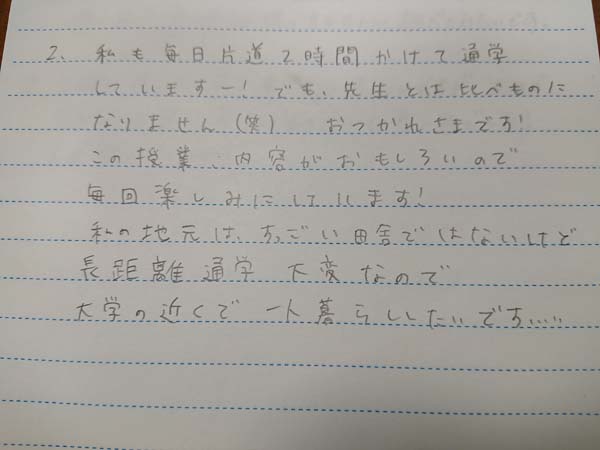 2、私も毎日片道2時間かけて通学
していますー！でも、先生とは比べものに
なりません（笑） おつかれさまです！
この授業、内容がおもしろいので
毎回楽しみにしています！
私の地元は、すっごい田舎ではないけど
長距離通学大変なので
大学の近くで一人暮らししたいです……